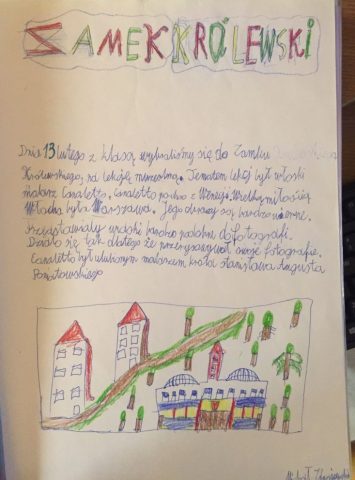 ZAMEK KRÓLEWSKI
Dnia 13 lutego z klasą wybraliśmy się do Zamku
Królewskiego, na lekcję muzealną. Tematem lekcji był włoski
malarz Canaletto. Canaletto pocho z Wenecji. Wielką miłością
Włocha była Warszawa. Jego obrazy są bardzo wierne.
Przedstawiały widoki bardzo podobne do fotografi.
Działo się tak dlatego że przerysowywał swoje fotografie.
Canaletto był ulubionym malarzem króla Stanisława Augusta
Poniatowskiego